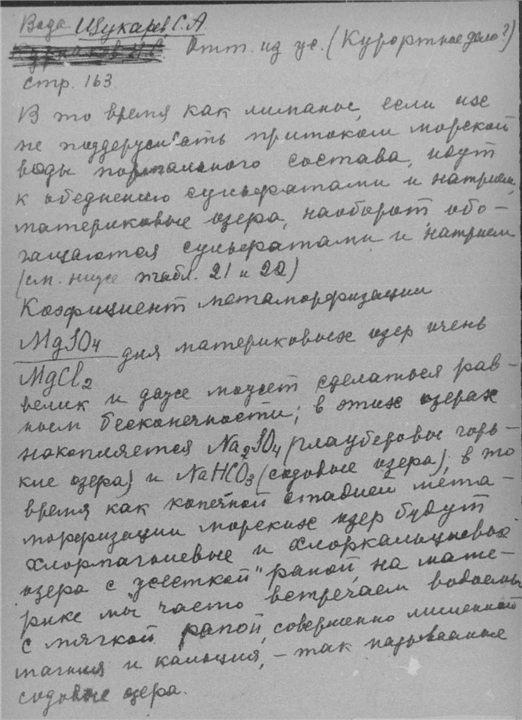 Вода Щукарев С.А
Отт. из ус. (Курортное дело?)
стр. 163
В то время как лиманы, если их
не поддерживать притоком морской
воды нормального состава, идут
к обеднению сульфатами и натрием,
материковые озера, наоборот обо-
гащаются сульфатами и натрием
(см. ниже табл. 21 и 22)
Коэфициент метаморфизации
MgSO4
MgCl2 для материковых озер очень
велик и даже может сделаться рав-
ным бесконечности; в этих озерах
накопляется Na2SO4 (глауберовые горь-
кие озера) и NaHCO3 (содовые озера), в то
время как конечной стадией мета-
морфизации морских озер будут
хлормагниевые и хлоркальциевые
озера с "жесткой" рапой, на мате-
рике мы часто встречаем водоемы
с мягкой рапой, совершенно лишенной
магния и кальция, - так называемые
содовые озера.